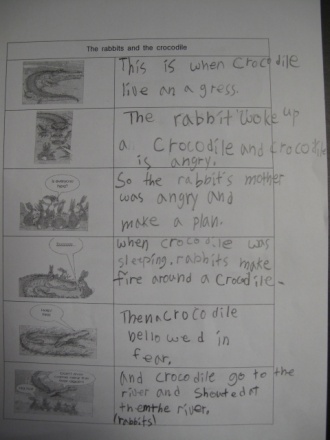 The rabbits and the crocodile
This is when Crocodile
live on a grass.
The rabbit woke up
a Crocodile and crocodile
is angry.
So the rabbit's mother
was angry and
make a plan.
when crocodile was
sleeping, rabbits make
fire around a Crocodile.
Then a crocodile
bellowed in
fear.
and crocodile go to the
river and shouted at
them the river.
(rabbits)